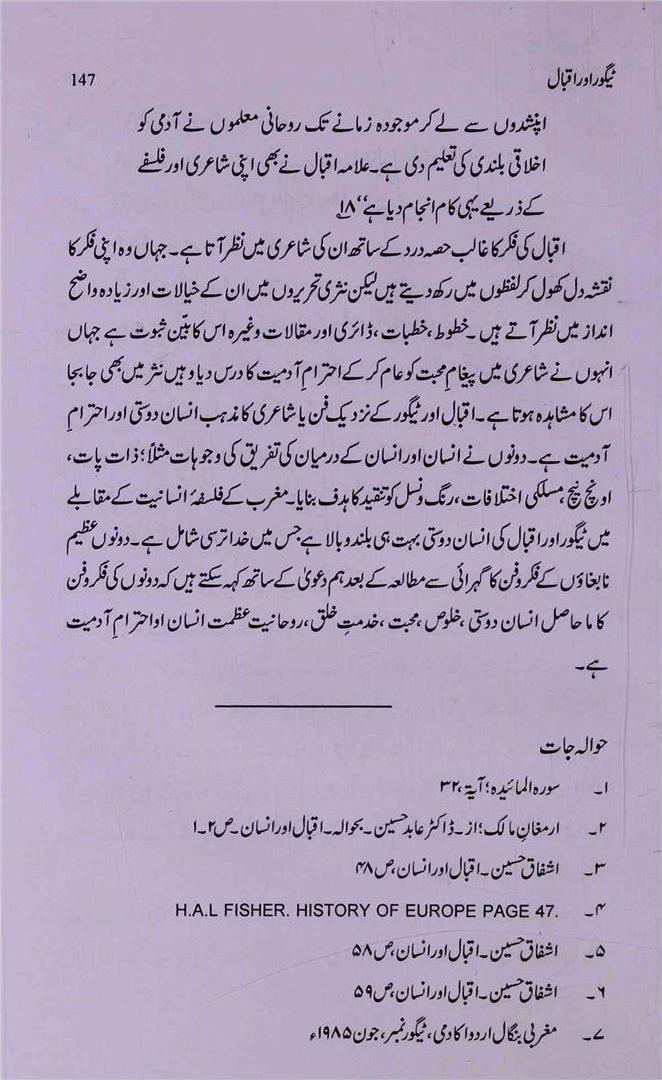 ٹیگور اور اقبال
147
اپنشدوں سے لے کر موجودہ زمانے تک روحانی معلموں نے آدمی کو
اخلاقی بلندی کی تعلیم دی ہے۔ علامہ اقبال نے بھی اپنی شاعری اور فلسفے
کے ذریعے یہی کام انجام دیا ہے‘‘ ۱۸؎
اقبال کی فکر کا غالب حصہ درد کے ساتھ ان کی شاعری میں نظر آتا ہے۔ جہاں وہ اپنی فکر کا
نقشہ دل کھول کر لفظوں میں رکھ دیتے ہیں لیکن نثری تحریروں میں ان کے خیالات اور زیادہ واضح
انداز میں نظر آتے ہیں ۔ خطوط ، خطبات ، ڈائری اور مقالات وغیرہ اس کا بیّن ثبوت ہے جہاں
انہوں نے شاعری میں پیغامِ محبت کو عام کر کے احترامِ آدمیت کا درس دیا وہیں نثر میں بھی جا بجا
اس کا مشاہدہ ہوتا ہے۔ اقبال اور ٹیگور کے نزدیک فن یا شاعری کا مذہب انسان دوستی اور احترامِ
آدمیت ہے۔ دونوں نے انسان اور انسان کے درمیان کی تفریق کی وجوہات مثلاً؛ ذات پات،
اونچ نیچ ، مسلکی اختلافات ، رنگ و نسل کو تنقید کا ہدف بنایا۔ مغرب کے فلسفۂ انسانیت کے مقابلے
میں ٹیگور اور اقبال کی انسان دوستی بہت ہی بلند و بالا ہے جس میں خدا ترسی شامل ہے۔ دونوں عظیم
نابغاؤں کے فکر و فن کا گہرائی سے مطالعہ کے بعد ہم دعویٰ کے ساتھ کہہ سکتے ہیں کہ دونوں کی فکر و فن
کا ما حاصل انسان دوستی ، خلوص ، محبت ، خدمتِ خلق ، روحانیت عظمت انسان او احترامِ آدمیت
ہے۔
حوالہ جات
۱۔ سورہ المائیدہ ؛ آیۃ ،۳۲
۲۔ ارمغانِ مالک ؛ از۔ ڈاکٹر عابد حسین ۔ بحوالہ ۔ اقبال اور انسان ۔ ص۲۔۱
۳۔ اشفاق حسین ۔ اقبال اور انسان ، ص ۴۸
۴۔ H.A.L FISHER. HISTORY OF EUROPE PAGE 47.
۵۔ اشفاق حسین ۔ اقبال اور انسان ، ص ۵۸
۶۔ اشفاق حسین ۔ اقبال اور انسان ، ص ۵۹
۷۔ مغربی بنگال اردو اکادمی ، ٹیگور نمبر ، جون ۱۹۸۵ء